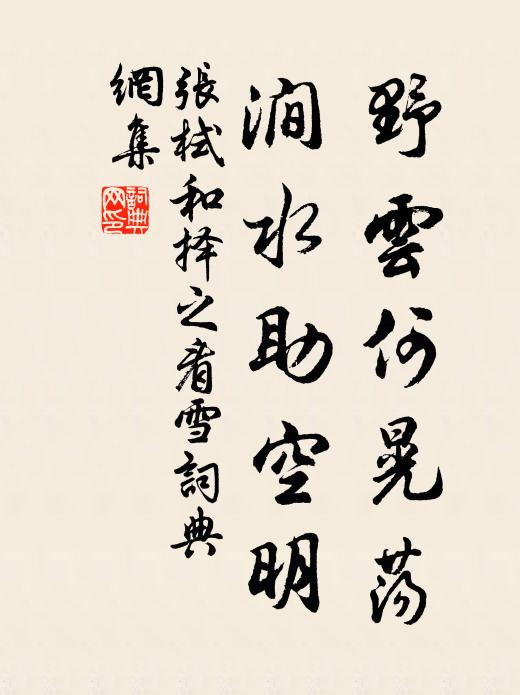 野雲何晃蕩
澗水助空明
張栻和择之看雪詞典
網集
詞典
网印